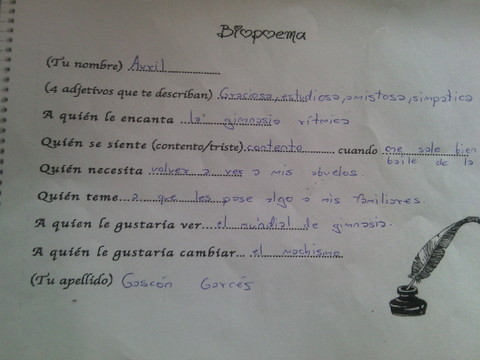 Biopoema
(Tu nombre) Auxil
(4 adjetivos que te describan) Graciosa, estudiosa, amistosa, simpatica
A quién le encanta la gimnasia rítmica
Quién se siente (contento/triste) contento cuando me sale bien
baile de la
Quién necesita volver a ver a mis abuelos.
Quién teme... a que les pase algo a mis familiares.
A quien le gustaría ver... el mundial de gimnasia.
A quién le gustaría cambiar... el machismo
(Tu apellido) Gascón Garcés